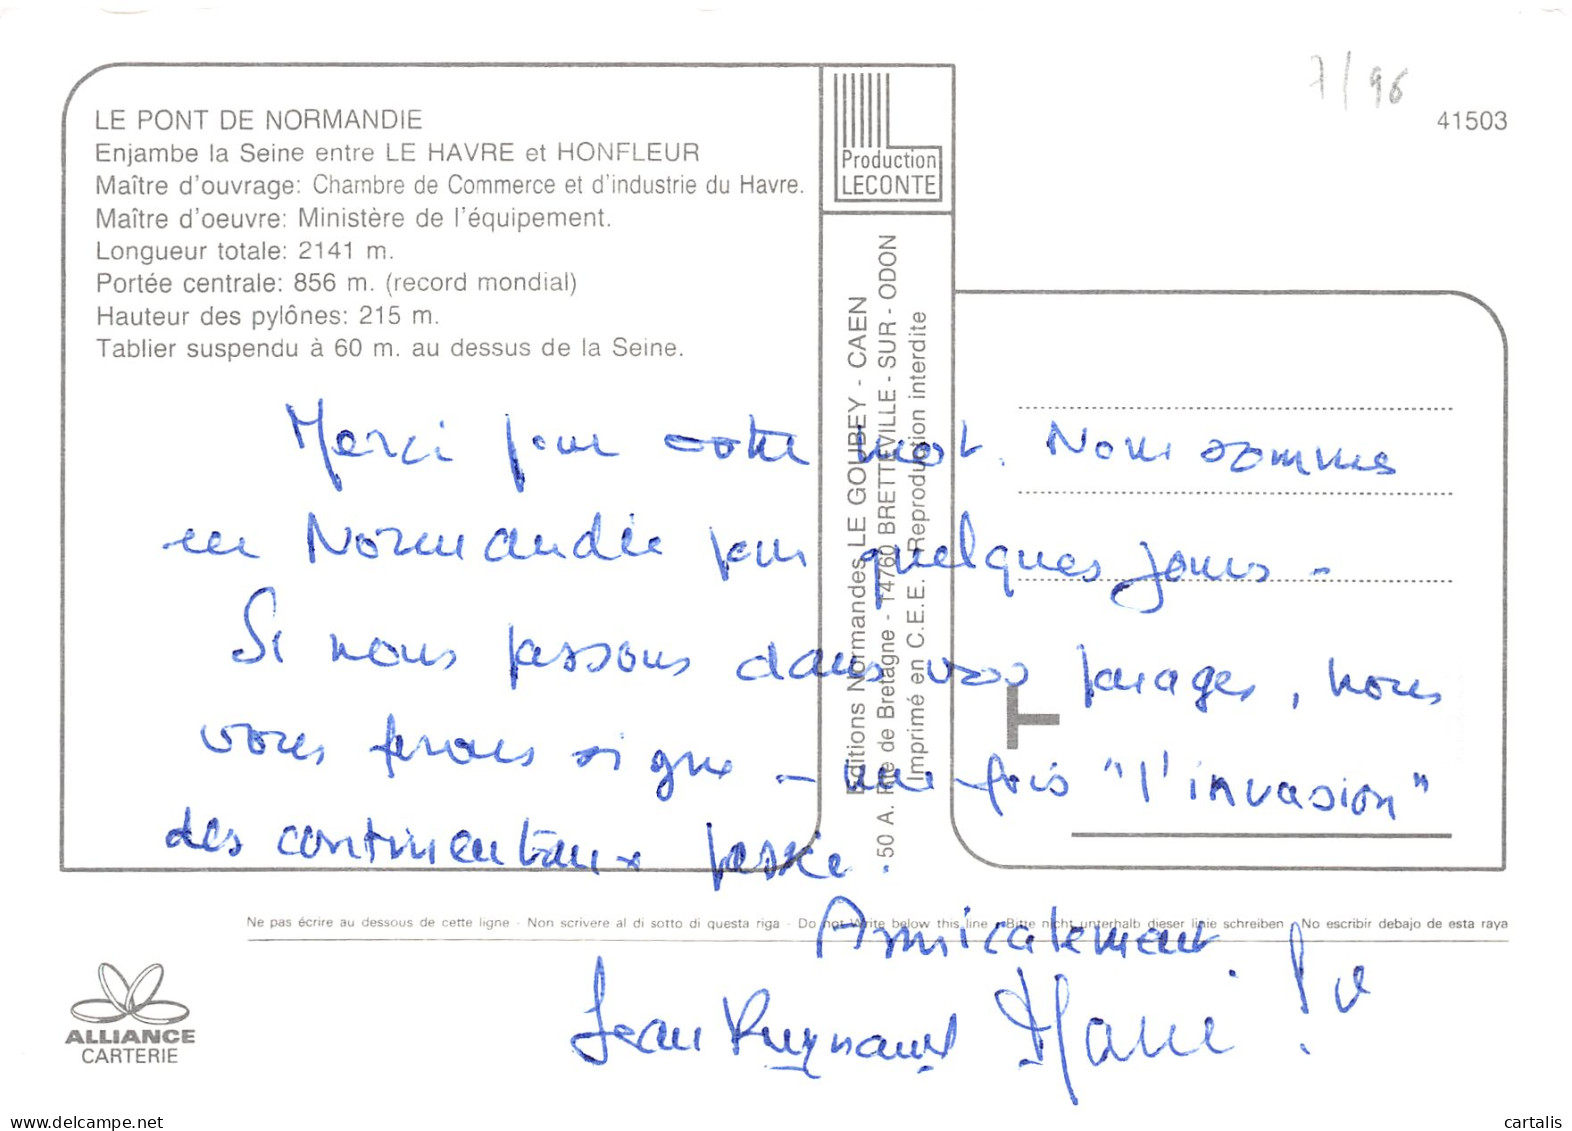 7/96
41503
LE PONT DE NORMANDIE
Enjambe la Seine entre LE HAVRE et HONFLEUR
Maître d'ouvrage: Chambre de Commerce et d'industrie du Havre.
Maître d'oeuvre: Ministère de l'équipement.
Longueur totale: 2141 m.
Portée centrale: 856 m. (record mondial)
Hauteur des pylônes: 215 m.
Tablier suspendu à 60 m. au dessus de la Seine.
Production
LECONTE
Editions Normandes LE GOUBEY - CAEN
50 A. Rue de Bretagne - 14760 BRETTEVILLE - SUR - ODON
Imprimé en C.E.E. - Reproduction interdite
Merci pour votre mot. Nous sommes
en Normandie pour quelques jours -
Si nous passons dans vos parages, nous
vous ferons signe - une fois "l'invasion"
des continentaux passée.
Amicalement
Jean Marie
Ne pas écrire au dessous de cette ligne - Non scrivere al di sotto di questa riga - Do not Write below this line - Bitte nicht unterhalb dieser linie schreiben - No escribir debajo de esta raya
ALLIANCE
CARTERIE
www.delcampe.net
cartalis